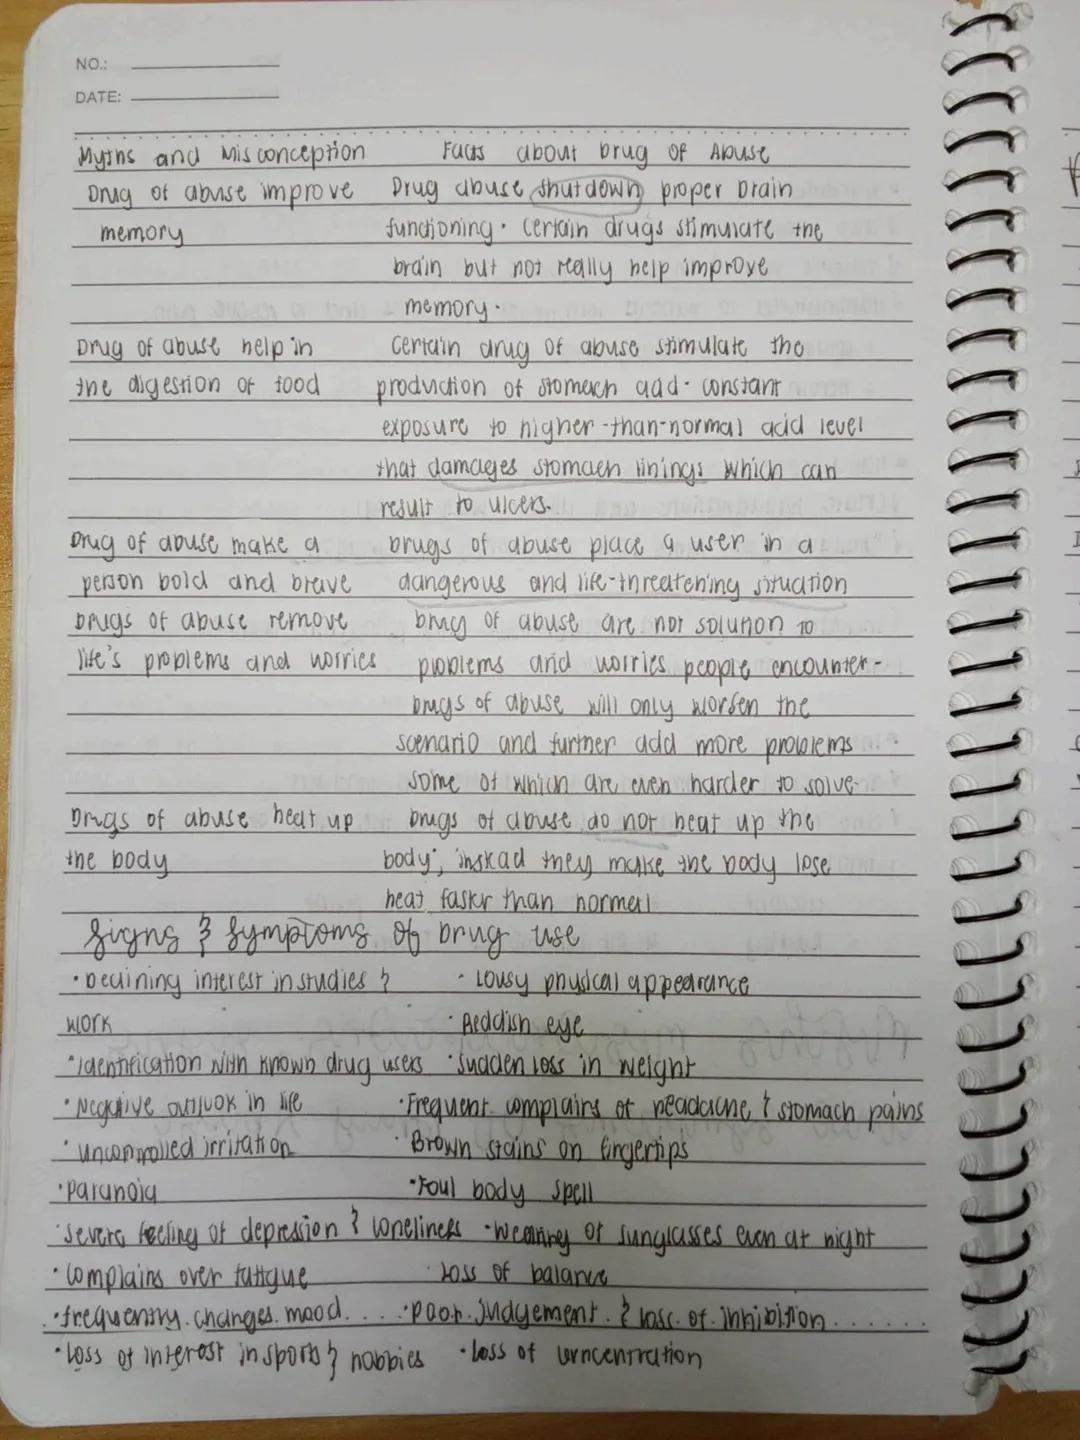 NO.:
DATE:
Myths and Misconception Facts about Drug of Abuse
Drug of abuse improve Drug abuse shutdown proper brain
memory functioning. Certain drugs stimulate the
brain but not really help improve
memory.
Drug of abuse help in Certain drug of abuse stimulate the
the digestion of food production of stomach acid. constant
exposure to higher-than-normal acid level
that damages stomach linings which can
result to ulcers.
Drug of abuse make a Drugs of abuse place a user in a
person bold and brave dangerous and life-threatening situation
Drugs of abuse remove Drug of abuse are not solution to
life's problems and worries problems and worries people encounter.
Drugs of abuse will only worsen the
scenario and further add more problems
some of which are even harder to solve.
Drugs of abuse heat up Drugs of abuse do not heat up the
the body body; instead they make the body lose
heat faster than normal
Signs & Symptoms of Drug use
• Declining interest in studies & • Lousy physical appearance
work • Reddish eye
• Identification with known drug users • Sudden loss in weight
• Negative outlook in life • Frequent complains of headache & stomach pains
• Uncontrolled irritation • Brown stains on fingertips
• Paranoia • Foul body spell
• Severe feeling of depression & loneliness • Wearing of sunglasses even at night
• Complains over fatigue • Loss of balance
• frequently changes mood • Poor judgement & loss of inhibition
• Loss of interest in sports & hobbies • Loss of concentration